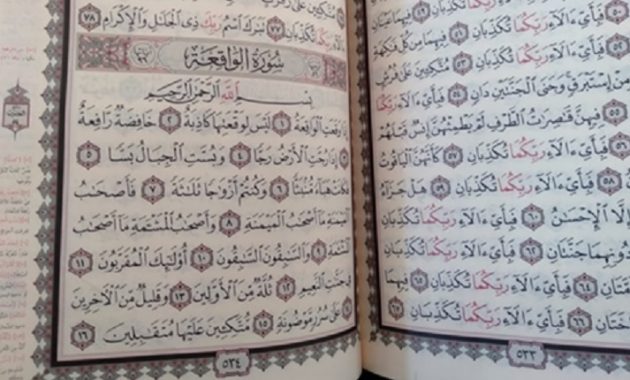 فَبِأَيِّ ءَالَآءِ رَبِّكُمَا تُكَذِّبَانِ ٤٩ فِيهِمَا عَيْنَانِ
٥٠ فَبِأَيِّ ءَالَآءِ رَبِّكُمَا تُكَذِّبَانِ ٥١ فِيهِمَا مِن كُلِّ فَٰكِهَةٍ
٥٢ فَبِأَيِّ ءَالَآءِ رَبِّكُمَا تُكَذِّبَانِ ٥٣ مُتَّكِـِٔينَ عَلَىٰ فُرُشٍ
مِنْ إِسْتَبْرَقٍ وَجَنَى ٱلْجَنَّتَيْنِ دَانٍ ٥٤ فَبِأَيِّ ءَالَآءِ رَبِّكُمَا
٥٥ فِيهِنَّ قَٰصِرَٰتُ ٱلطَّرْفِ لَمْ يَطْمِثْهُنَّ إِنسٌ قَبْلَهُمْ
٥٦ فَبِأَيِّ ءَالَآءِ رَبِّكُمَا تُكَذِّبَانِ ٥٧ كَأَنَّهُنَّ ٱلْيَاقُوتُ
٥٨ فَبِأَيِّ ءَالَآءِ رَبِّكُمَا تُكَذِّبَانِ ٥٩ هَلْ جَزَآءُ
إِلَّا ٱلْإِحْسَٰنُ ٦٠ فَبِأَيِّ ءَالَآءِ رَبِّكُمَا تُكَذِّبَانِ
دُونِهِمَا جَنَّتَانِ ٦٢ فَبِأَيِّ ءَالَآءِ رَبِّكُمَا تُكَذِّبَانِ
٦٤ فَبِأَيِّ ءَالَآءِ رَبِّكُمَا تُكَذِّبَانِ ٦٥ فِيهِمَا
٦٦ فَبِأَيِّ ءَالَآءِ رَبِّكُمَا تُكَذِّبَانِ ٦٧
٥٣٣
مُتَّكِـِٔينَ عَلَىٰ
ءَالَآءِ رَبِّكُمَا تُكَذِّبَانِ ٧٧ تَبَٰرَكَ ٱسْمُ رَبِّكَ ذِى ٱلْجَلَٰلِ وَٱلْإِكْرَامِ ٧٨
سُورَةُ الوَاقِعَةِ
بِسْمِ ٱللَّهِ ٱلرَّحْمَٰنِ ٱلرَّحِيمِ
إِذَا وَقَعَتِ ٱلْوَاقِعَةُ ١ لَيْسَ لِوَقْعَتِهَا كَاذِبَةٌ ٢ خَافِضَةٌ رَّافِعَةٌ
إِذَا رُجَّتِ ٱلْأَرْضُ رَجًّا ٤ وَبُسَّتِ ٱلْجِبَالُ بَسًّا ٥
فَكَانَتْ هَبَآءً مُّنۢبَثًّا ٦ وَكُنتُمْ أَزْوَٰجًا ثَلَٰثَةً ٧ فَأَصْحَٰبُ
ٱلْمَيْمَنَةِ مَآ أَصْحَٰبُ ٱلْمَيْمَنَةِ ٨ وَأَصْحَٰبُ ٱلْمَشْـَٔمَةِ مَآ أَصْحَٰبُ
ٱلْمَشْـَٔمَةِ ٩ وَٱلسَّٰبِقُونَ ٱلسَّٰبِقُونَ ١٠ أُو۟لَٰٓئِكَ ٱلْمُقَرَّبُونَ ١١
فِى جَنَّٰتِ ٱلنَّعِيمِ ١٢ ثُلَّةٌ مِّنَ ٱلْأَوَّلِينَ ١٣ وَقَلِيلٌ مِّنَ ٱلْءَاخِرِينَ
عَلَىٰ سُرُرٍ مَّوْضُونَةٍ ١٥ مُّتَّكِـِٔينَ عَلَيْهَا مُتَقَٰبِلِينَ ١٦
٥٣٤